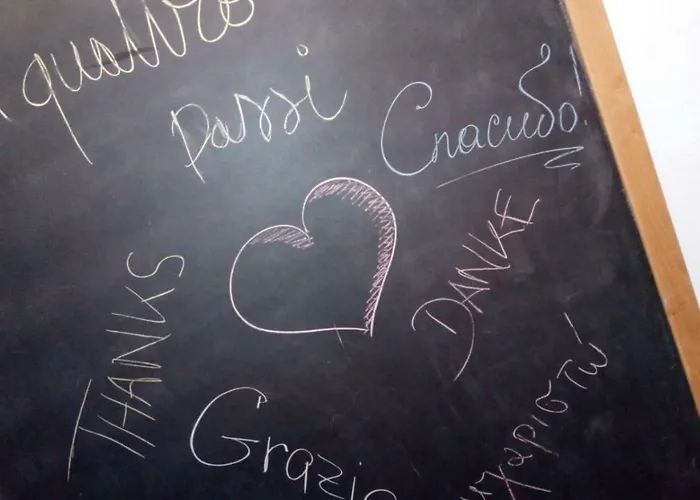 quattro
passi
Спасибо!
THANKS
DANKE
Grazie
υχαριστώ